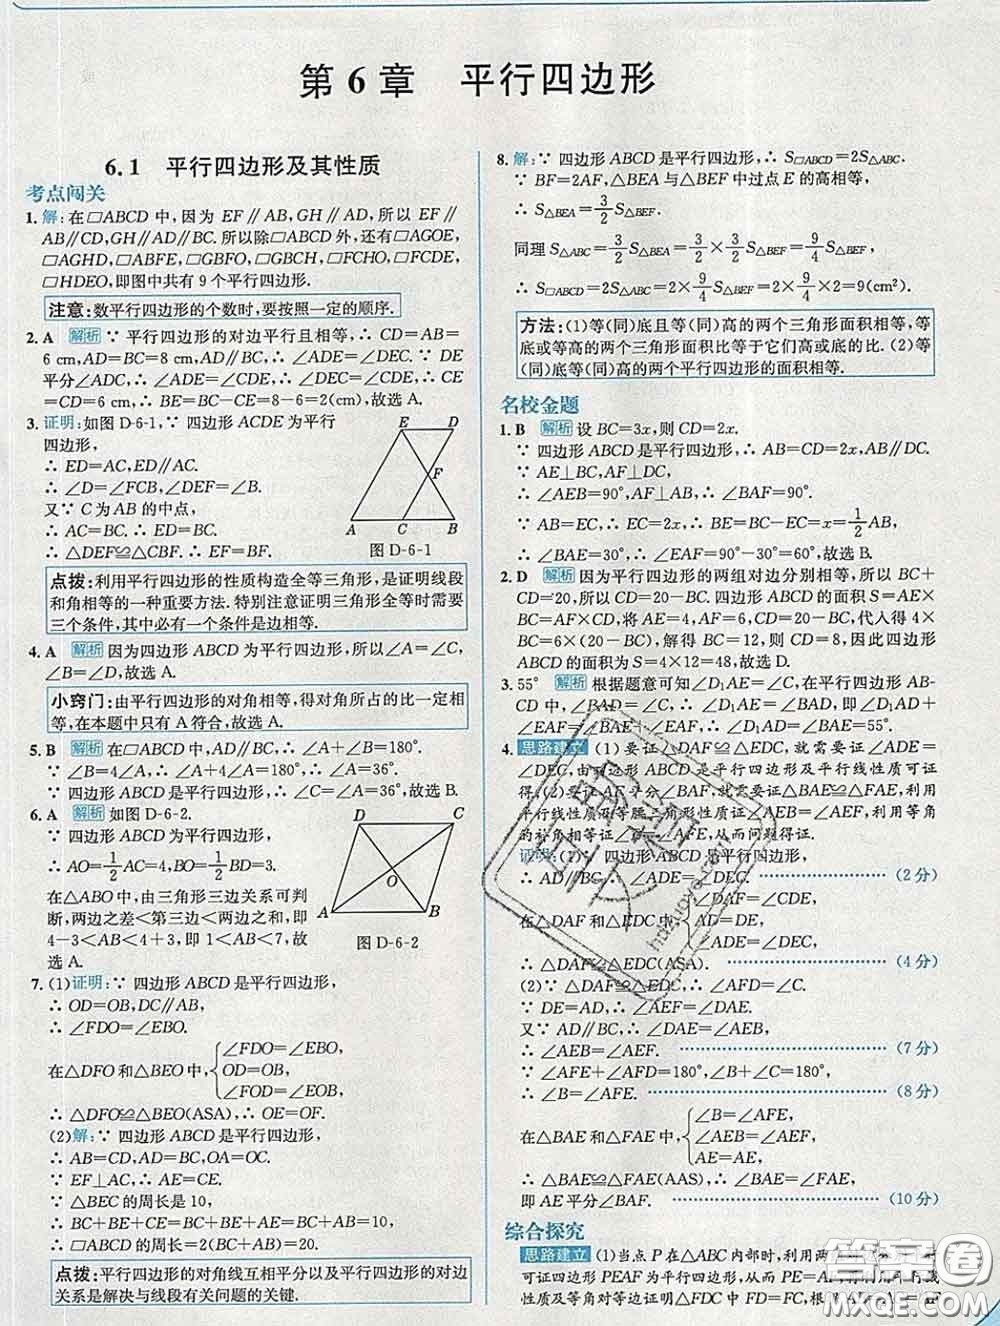 第 6 章 平行四边形
6.1 平行四边形及其性质
考点闯关
1. 解:在□ABCD 中,因为 EF∥AB,GH∥AD,所以 EF∥
AB∥CD,GH∥AD∥BC.所以除□ABCD 外,还有□AGOE,
□AGHD,□ABFE,□GBFO,□GBCH,□FCHO,□EFCD,
□HDEO,即图中共有 9 个平行四边形.
注意:数平行四边形的个数时,要按照一定的顺序.
2. A 解析 ∵ 平行四边形的对边平行且相等,∴ CD=AB=
6 cm,AD=BC=8 cm,AD∥BC.∴ ∠ADE=∠DEC.∵ DE
平分∠ADC,∴ ∠ADE=∠CDE.∴ ∠DEC=∠CDE,∴ CE
=CD=6 cm,∴ BE=BC-CE=8-6=2(cm),故选 A.
3. 证明:如图 D-6-1,∵ 四边形 ACDE 为平行
四边形,
∴ ED=AC,ED∥AC.
∴ ∠D=∠FCB,∠DEF=∠B.
又∵ C 为 AB 的中点,
∴ AC=BC.∴ ED=BC.
∴ △DEF≌△CBF.∴ EF=BF.
E D
F
A C B
图 D-6-1
点拨:利用平行四边形的性质构造全等三角形,是证明线段
和角相等的一种重要方法.特别注意证明三角形全等时需要
三个条件,其中必有一个条件是边相等.
4. A 解析 因为四边形 ABCD 为平行四边形,所以∠A=∠C,
∠B=∠D,故选 A.
小窍门:由平行四边形的对角相等,得对角所占的比一定相
等,在本题中只有 A 符合,故选 A.
5. B 解析 在□ABCD 中,AD∥BC,∴ ∠A+∠B=180°.
∵ ∠B=4∠A,∴ ∠A+4∠A=180°,∴ ∠A=36°.
∵ 四边形 ABCD 是平行四边形,∴ ∠C=∠A=36°,故选 B.
6. A 解析 如图 D-6-2.
∵ 四边形 ABCD 为平行四边形,
∴ AO=1/2AC=4,BO=1/2BD=3.
在△ABO 中,由三角形三边关系可
知,两边之差<第三边<两边之和,即
4-3<AB<4+3,即 1<AB<7,故
选 A.
D C
O
A B
图 D-6-2
7. (1)证明:∵ 四边形 ABCD 是平行四边形,
∴ OD=OB,DC∥AB,
∴ ∠FDO=∠EBO.
在△DFO 和△BEO 中,{∠FDO=∠EBO,
OD=OB,
∠FOD=∠EOB,
∴ △DFO≌△BEO(ASA),∴ OE=OF.
(2)解:∵ 四边形 ABCD 是平行四边形,
∴ AB=CD,AD=BC,OA=OC.
∵ EF⊥AC,∴ AE=CE.
∵ △BEC 的周长是 10,
∴ BC+BE+CE=BC+BE+AE=BC+AB=10,
∴ □ABCD 的周长=2(BC+AB)=20.
点拨:平行四边形的对角线互相平分以及平行四边形的对边
关系是解决与线段有关问题的关键.
8. 解:∵ 四边形 ABCD 是平行四边形,∴ S□ABCD=2S△ABC.
∵ BF=2AF,△BEA 与△BEF 中过点 E 的高相等,
∴ S△BEA=3/2S△BEF.
同理 S△ABC=3/2S△BEA=3/2×3/2S△BEF=9/4S△BEF,
∴ S□ABCD=2S△ABC=2×9/4S△BEF=2×9/4×2=9(cm²).
方法:(1)等(同)底且等(同)高的两个三角形面积相等,等
底或等高的两个三角形面积比等于它们高或底的比.(2)等
(同)底等(同)高的两个平行四边形的面积相等.
名校金题
1. B 解析 设 BC=3x,则 CD=2x.
∵ 四边形 ABCD 是平行四边形,∴ AB=CD=2x,AB∥DC.
∵ AE⊥BC,AF⊥DC,
∴ ∠AEB=90°,AF⊥AB,∴ ∠BAF=90°.
∵ AB=EC,∴ EC=2x,∴ BE=BC-EC=x=1/2AB,
∴ ∠BAE=30°,∴ ∠EAF=90°-30°=60°,故选 B.
2. D 解析 因为平行四边形的两组对边分别相等,所以 BC+
CD=20,所以 CD=20-BC.四边形 ABCD 的面积 S=AE×
BC=AF×CD,将 AE=4,AF=6,CD=20-BC,代入得 4×
BC=6×(20-BC),解得 BC=12,则 CD=8,因此四边形
ABCD 的面积为 S=4×12=48,故选 D.
3. 55° 解析 根据题意可知∠D₁AE=∠C,在平行四边形 AB-
CD 中,∠BAD=∠C,∴ ∠D₁AE=∠BAD,即∠D₁AD+
∠EAF=∠BAE+∠EAF,∴ ∠D₁AD=∠BAE=55°.
4. 思路建立 (1)要证△DAF≌△EDC,就需要证∠ADE=
∠DEC,由四边形 ABCD 是平行四边形及平行线性质可证
得.(2)要证 AE 平分∠BAF,就要证△BAE≌△FAE,利用平
行线性质及等腰三角形性质证∠AEB=∠AEF,利用等角
的补角相等证∠B=∠AFE,从而问题得证.
证明:(1)∵ 四边形 ABCD 是平行四边形,
∴ AD∥BC,∴ ∠ADE=∠DEC. (2 分)
在△DAF 和△EDC 中{∠DAF=∠CDE,
AD=DE,
∠ADE=∠DEC,
∴ △DAF≌△EDC(ASA). (4 分)
(2)∵ △DAF≌△EDC,∴ ∠AFD=∠C.
∵ DE=AD,∴ ∠DEA=∠DAE.
又∵ AD∥BC,∴ ∠DAE=∠AEB,
∴ ∠AEB=∠AEF. (7 分)
∵ ∠AFE+∠AFD=180°,∠B+∠C=180°,
∴ ∠B=∠AFE. (8 分)
在△BAE 和△FAE 中{∠B=∠AFE,
∠AEB=∠AEF,
AE=AE,
∴ △BAE≌△FAE(AAS),∴ ∠BAE=∠FAE,
即 AE 平分∠BAF. (10 分)
综合探究
思路建立 (1)当点 P 在△ABC 内部时,利用两
可证四边形 PEAF 为平行四边形,从而 PE=AF,
性质及等角对等边证明△FDC 中 FD=FC,
答案圈
MXQE.COM